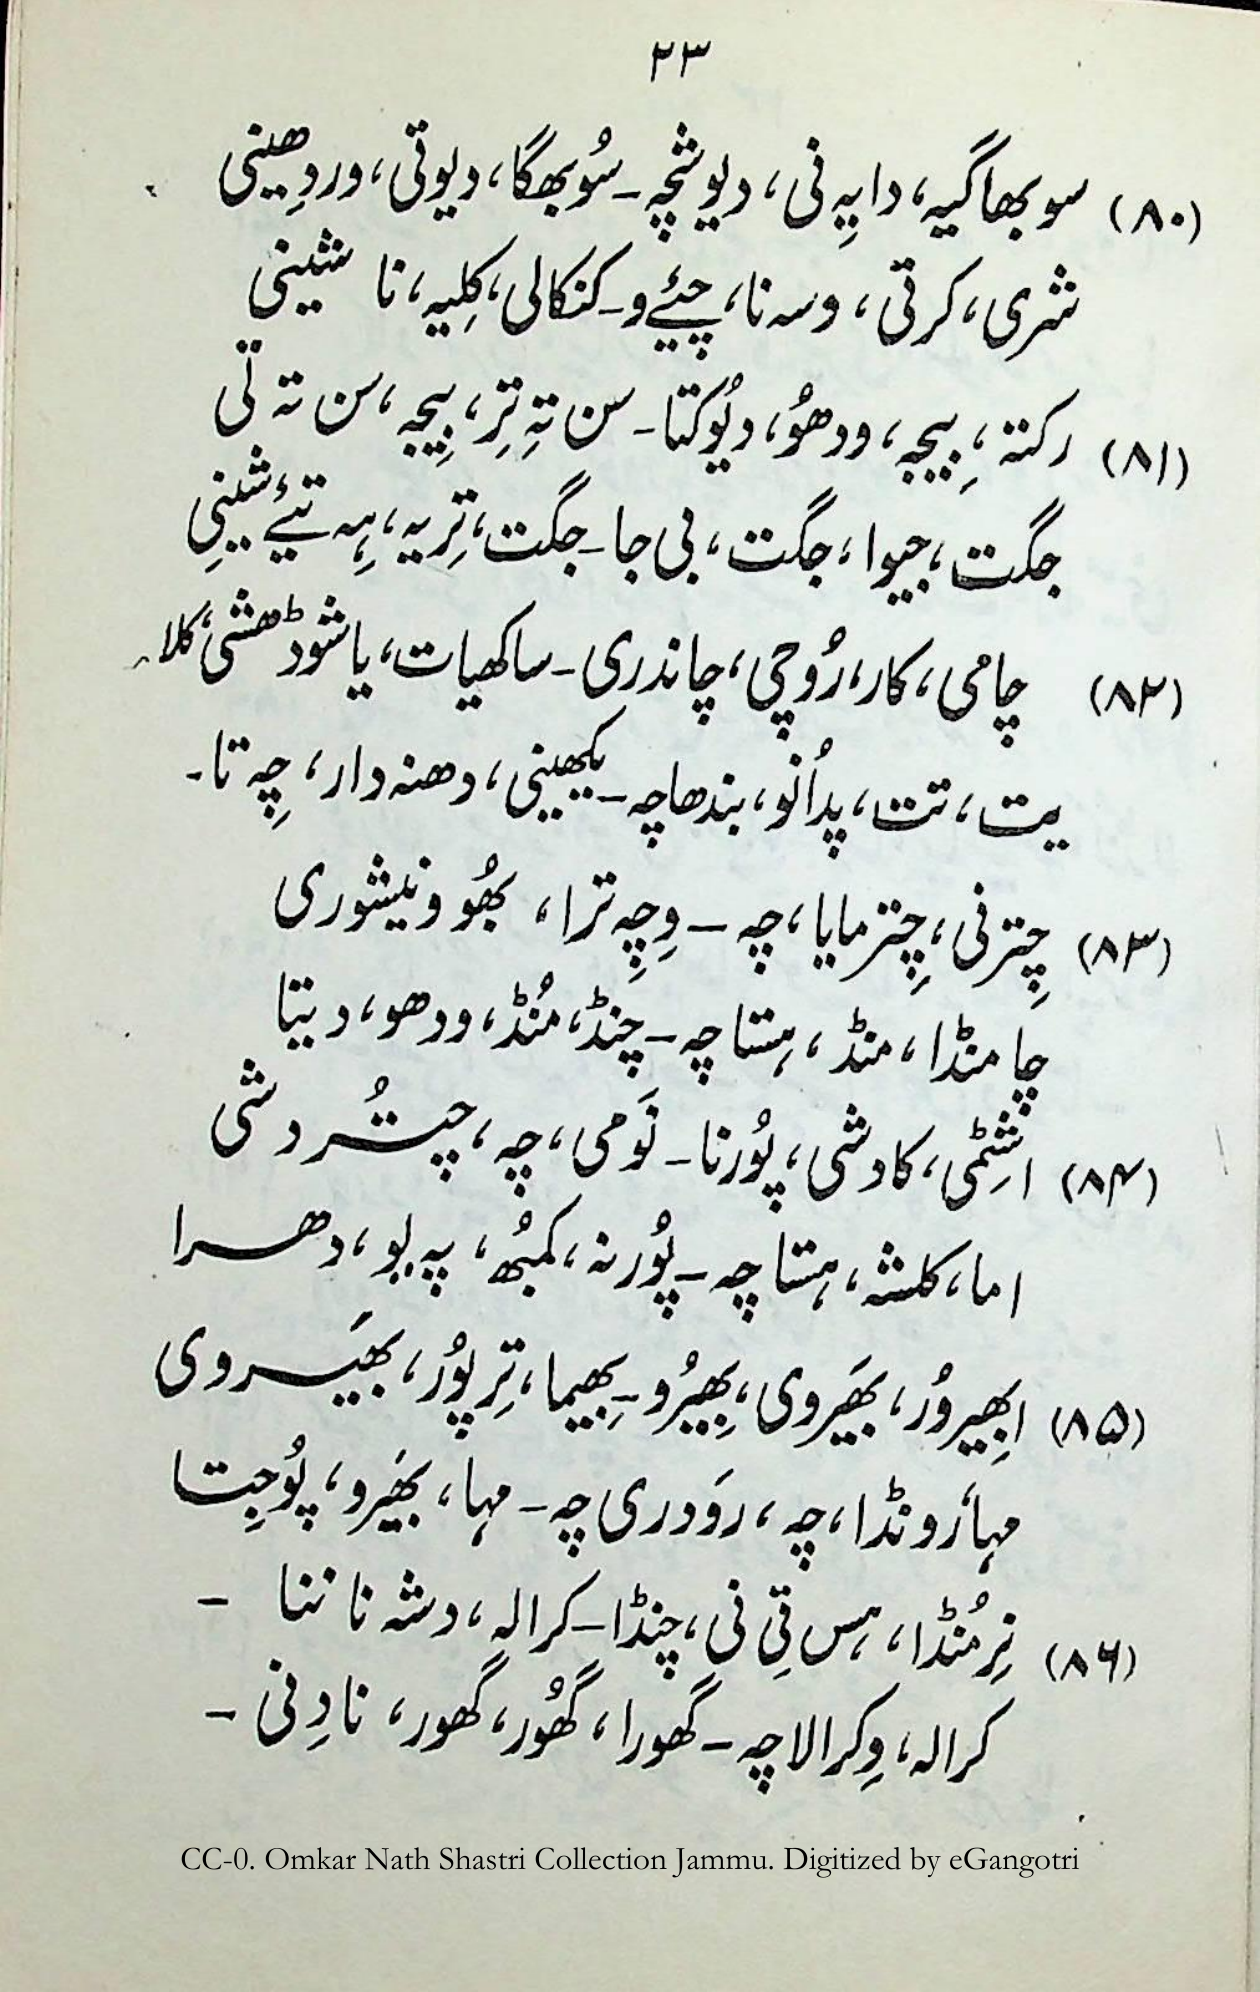 ۲۳
(۸۰) سوبھاگیہ، دایِہ نی، دیوشچہ ـ سُوبھگا، دیوتی، وردِھینی
شری، کرتی، وسہ نا، چیئے و ـ کنکالی، کِلیہ، نا شینی
(۸۱) رکتہ، بِیجہ، ودھُو، دیُوکتا ـ سن تہِ تِر، بِیجہ، سن تہ تی
جگت، جیوا، جگت، بی جا ـ جگت، تِریہ، ہِہ تیئے شینیِ
(۸۲) چامی، کار، رُوچی، چاندری ـ ساکھیات، یا شوڈھشی، کلا
یت، تت، پداُنُو، بندھاچہ ـ یکھینی، دھنہ دار، چِہ تا ـ
(۸۳) چِترنی، چِترمایا، چہ ـ وِچِہ ترا، بھُوونیشوری
چامنڈا، منڈ، ہستا چہ ـ چنڈ، مُنڈ، ودھو، دیتا
(۸۴) اشٹِمی، کادشی، پُورنا ـ نَومی، چہ، چتُردشی
اما، کلشہ، ہستا چہ ـ پُورنہ، کمبُھ، پہ یو، دھرا
(۸۵) ابِھیروُر، بھَیروی، بِھیرُو ـ بِھیما، تِرپُور، بھَیروی
مہارَونڈا، چہ، روَدری چہ ـ مہا، بھَیرو، پُوجِتا
(۸۶) نِرمُنڈا، ہِس تِی نی، چنڈا ـ کرالہ، دشہ نا ننا ـ
کرالہ، وِکرالاچہ ـ گھورا، گھُور، گھور، نادِنی ـ
CC-0. Omkar Nath Shastri Collection Jammu. Digitized by eGangotri